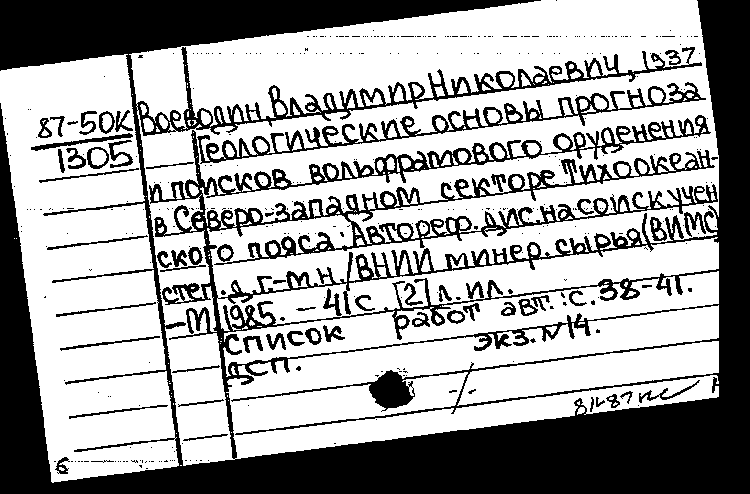 87-50К Воеводин, Владимир Николаевич, 1937
1305 Геологические основы прогноза
и поисков вольфрамового оруденения
в Северо-западном секторе Тихоокеан-
ского пояса: Автореф. дис. на соиск. учен
степ. д. г.-м. н. / ВНИИ минер. сырья (ВИМС)
-М. 1985. - 41 с. [2] л. ил.
список работ авт.: с. 38-41.
ДСП. экз. N 14.
-/-
6